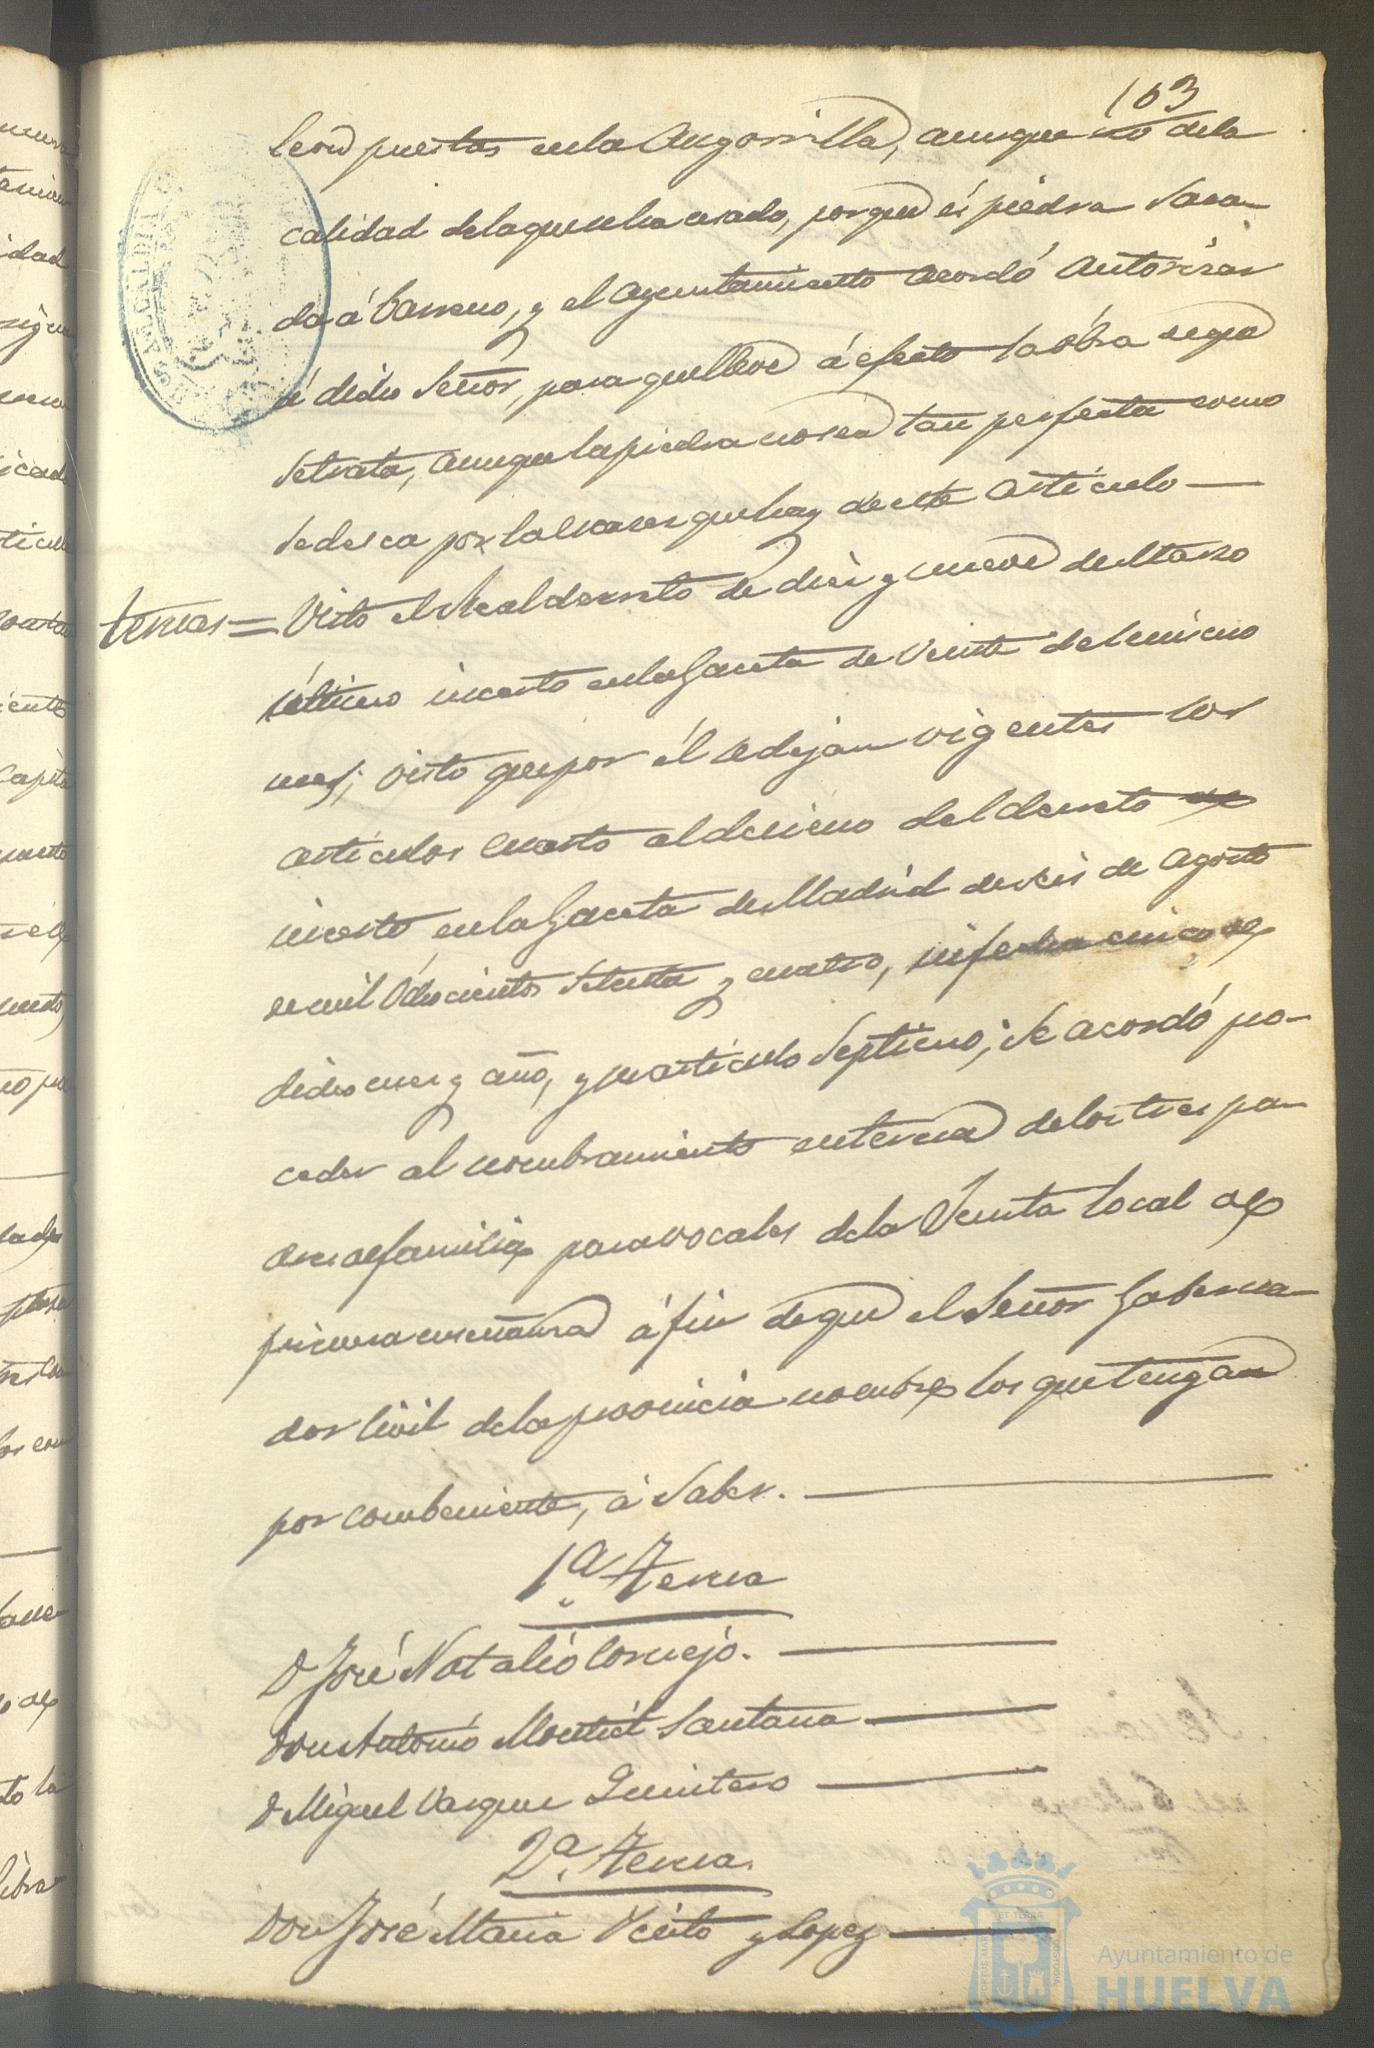 103
puestas en la Angorrilla, aunque no de la
calidad de la que se ha usado, porque és piedra saca-
da á barreno, y el Ayuntamiento acordó autorizar
á dicho Señor, para que lleve á efecto la obra segun
se trata, aunque la piedra no sea tan perfecta como
se desea por la escases que hay de este artículo
ternas = Visto el Real decreto de diez y nueve de Marzo
último incerto en la Gaceta de veinte del mismo
mes; visto que por él se dejan vigentes los
artículos cuarto al decimo del decreto
incerto en la Gaceta de Madrid de seis de Agosto
de mil ochocientos setenta y cuatro, su fecha cinco de
dicho mes y año, y su artículo septimo; se acordó pro-
ceder al nombramiento en terna de los tres pa-
dres de familia para vocales de la Junta local de
primera enseñanza á fin de que el Señor Goberna-
dor Civil de la provincia nombre los que tenga
por combeniente, á saber.
1ª Terna
D José Natalió Cornejo.
Don Antonio Montiel Santana
D Miguel Vazquez Quintero
2ª Terna.
Don José Maria Vcito y Lopez
Ayuntamiento de
HUELVA